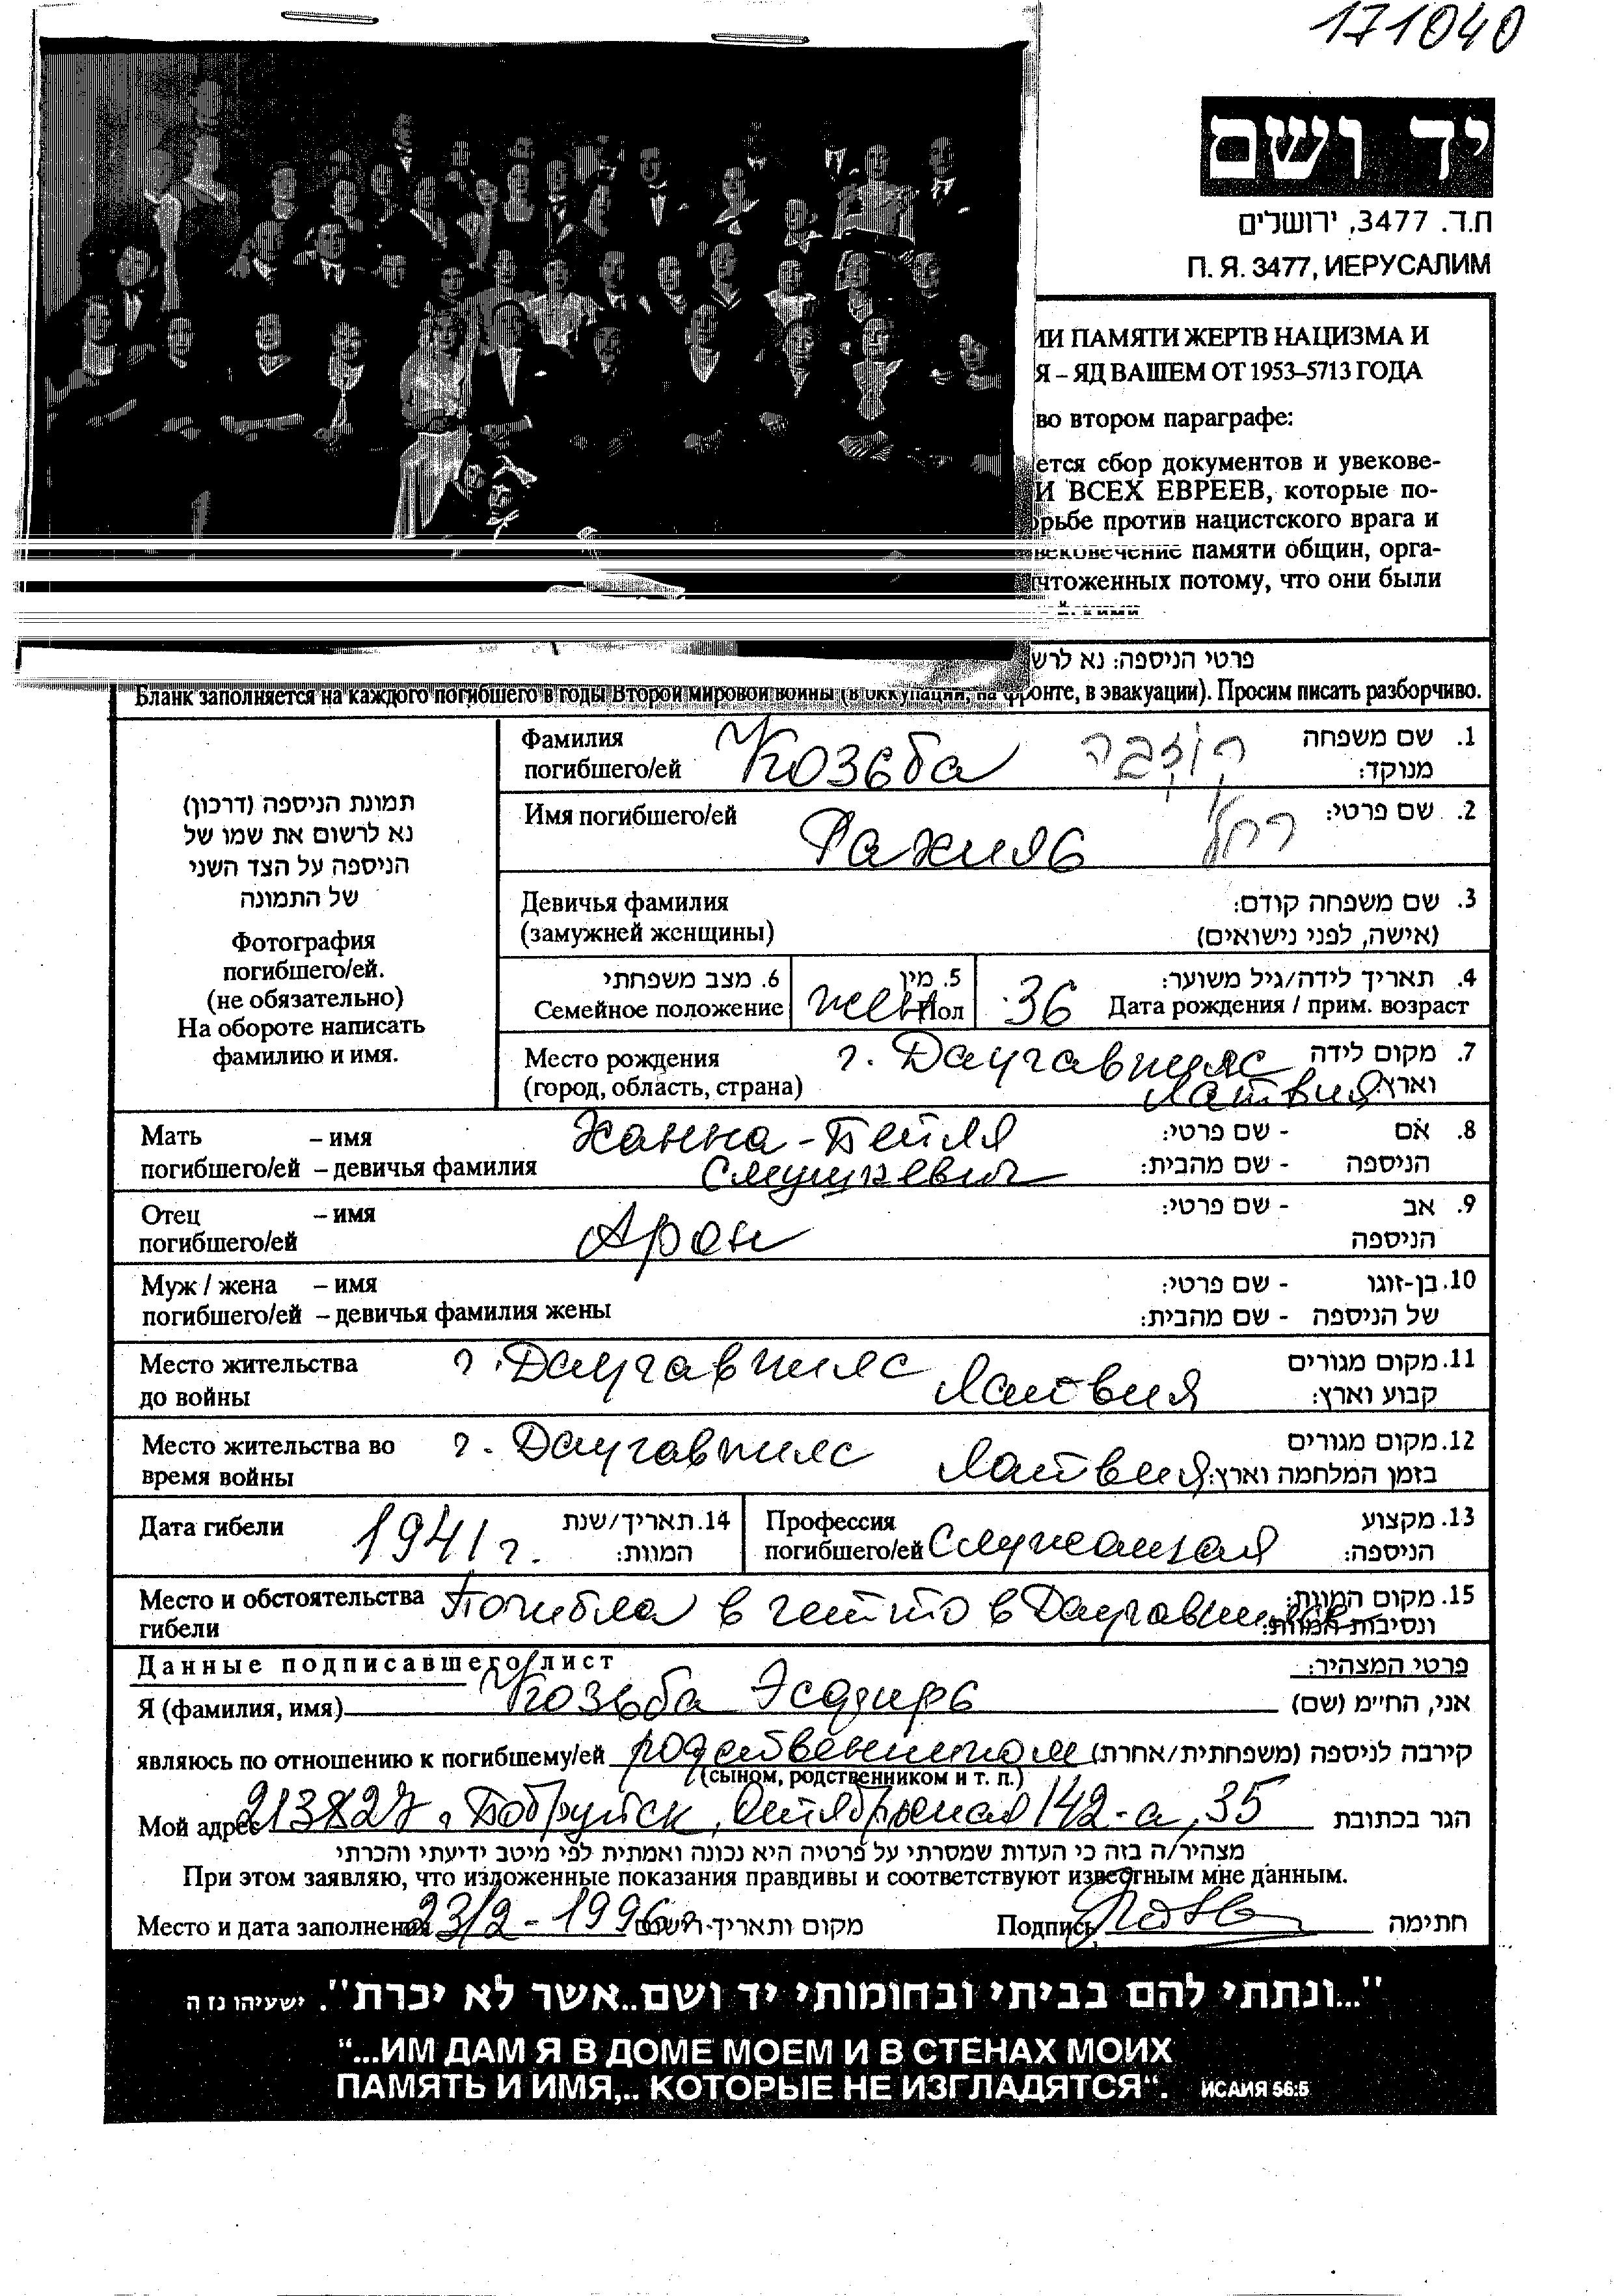 171040
יד ושם
ת.ד. 3477, ירושלים
П. Я. 3477, ИЕРУСАЛИМ
ИИ ПАМЯТИ ЖЕРТВ НАЦИЗМА И
Я – ЯД ВАШЕМ ОТ 1953–5713 ГОДА
во втором параграфе:
ется сбор документов и увекове-
И ВСЕХ ЕВРЕЕВ, которые по-
орьбе против нацистского врага и
вековечение памяти общин, орга-
ичтоженных потому, что они были
פרטי הניספה: נא לרש
Бланк заполняется на каждого погибшего в годы Второй мировой войны (в оккупации, на фронте, в эвакуации). Просим писать разборчиво.
תמונת הניספה (דרכון)
נא לרשום את שמו של
הניספה על הצד השני
של התמונה
Фотография
погибшего/ей.
(не обязательно)
На обороте написать
фамилию и имя.
Фамилия погибшего/ей Козьба קוזבה 1. שם משפחה מנוקד:
Имя погибшего/ей Рахиль רחל 2. שם פרטי:
Девичья фамилия 3. שם משפחה קודם:
(замужней женщины) (אישה, לפני נישואים)
6. מצב משפחתי 5. מין 4. תאריך לידה/גיל משוער:
Семейное положение жен Пол 36 Дата рождения / прим. возраст
Место рождения г. Даугавпилс 7. מקום לידה
(город, область, страна) Латвия וארץ:
Мать – имя Ханна-Бейля 8. אם - שם פרטי:
погибшего/ей – девичья фамилия Смушкевич הניספה - שם מהבית:
Отец – имя Арон 9. אב - שם פרטי:
погибшего/ей הניספה
Муж / жена – имя 10. בן-זוגו - שם פרטי:
погибшего/ей – девичья фамилия жены של הניספה - שם מהבית:
Место жительства г. Даугавпилс 11. מקום מגורים
до войны Латвия קבוע וארץ:
Место жительства во г. Даугавпилс 12. מקום מגורים
время войны Латвия בזמן המלחמה וארץ:
Дата гибели 1941 г. 14. תאריך/שנת המוות:
Профессия погибшего/ей Служащая 13. מקצוע הניספה:
Место и обстоятельства Погибла в гетто в Даугавпилсе 15. מקום המוות:
гибели ונסיבות המוות:
Данные подписавшего лист פרטי המצהיר:
Я (фамилия, имя) Козьба Эсфирь אני, החיימ (שם)
являюсь по отношению к погибшему/ей родственником קירבה לניספה (משפחתית/אחרת)
(сыном, родственником и т. п.)
Мой адрес 213827 г Бобруйск, Октябрьская 142-а, 35 הגר בכתובת
מצהיר/ה בזה כי העדות שמסרתי על פרטיה היא נכונה ואמתית לפי מיטב ידיעתי והכרתי
При этом заявляю, что изложенные показания правдивы и соответствуют известным мне данным.
Место и дата заполнения 23/2-1996 г. מקום ותאריך Подпись חתימה
"...ונתתי להם בביתי ובחומותי יד ושם..אשר לא יכרת". ישעיהו נז ה
“...ИМ ДАМ Я В ДОМЕ МОЕМ И В СТЕНАХ МОИХ
ПАМЯТЬ И ИМЯ,.. КОТОРЫЕ НЕ ИЗГЛАДЯТСЯ“. ИСАИЯ 56:5